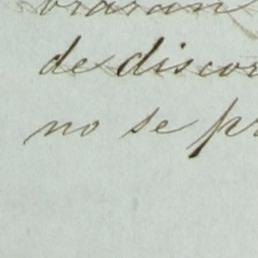 de discor
no se pr